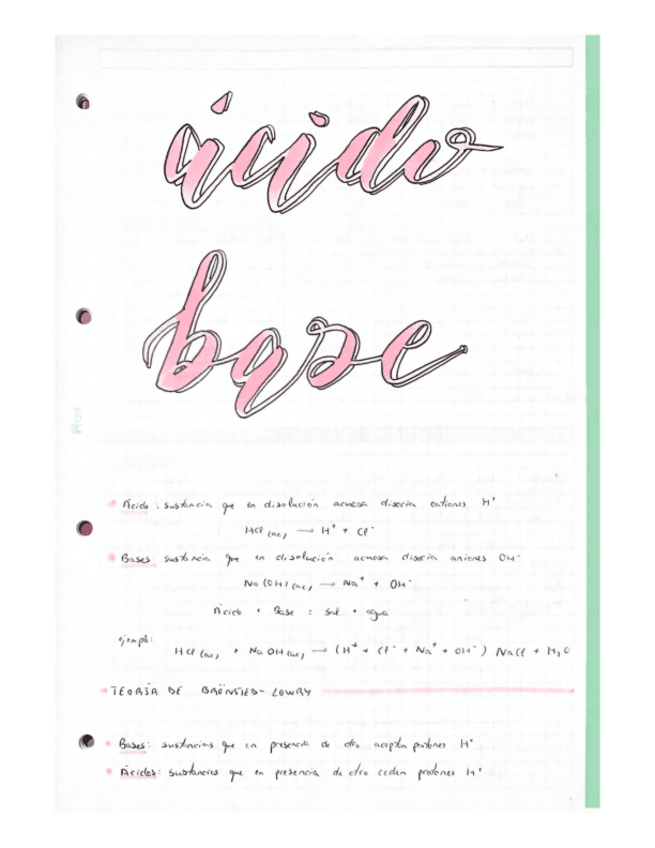 ácido
base
Ácido: sustancia que en disolución acuosa disocia cationes H⁺
HCl (ac) → H⁺ + Cl⁻
Bases: sustancia que en disolución acuosa disocia aniones OH⁻
Na(OH) (ac) → Na⁺ + OH⁻
Ácido + Base = sal + agua
ejempl:
HCl (ac) + NaOH (ac) → (H⁺ + Cl⁻ + Na⁺ + OH⁻) NaCl + H₂O
TEORÍA DE BRÖNSTED-LOWRY
Bases: sustancias que en presencia de otro acepta protones H⁺
Ácidos: sustancias que en presencia de otro ceden protones H⁺